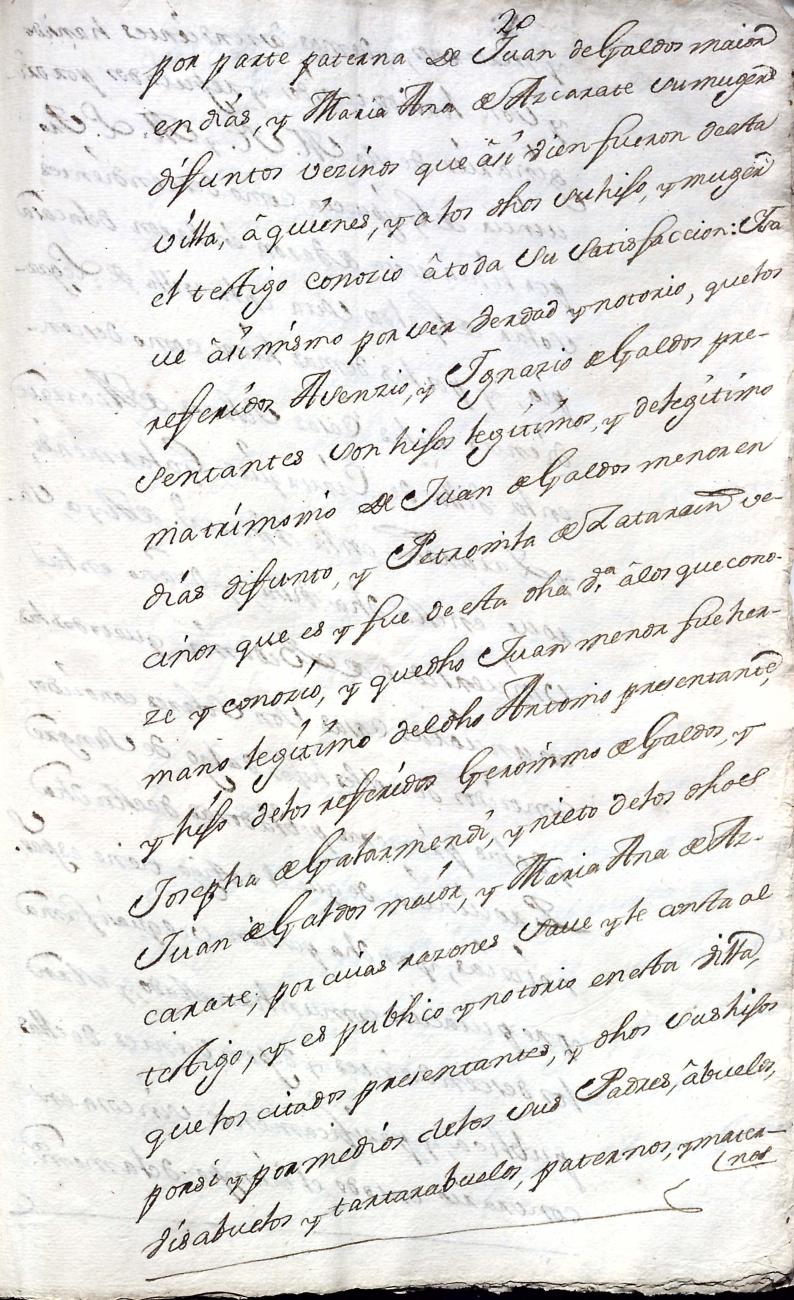 20
por parte paterna de Juan de Galdos maior
en diás, y Maria Ana de Azcarate su muger
difuntos vezinos que âsi vien fueron de esta
villa, â quiénes, y a los dhos su hijo, y muger
el testigo conozio âtoda su satisfaccion: Sa
ve âsimismo por ser verdad y notorio, que los
refferidos Asenzio, y Ignazio de Galdos pre-
sentantes son hijos legitimos, y de legitimo
matrimonio de Juan de Galdos menor en
diás difunto, y Petronila de Zatarain ve-
cinos que es y fue de esta dha va. â los que cono-
ze y conozió, y que dho Juan menor fue her-
mano legitimo del dho Antonio presentante,
y hijo de los refferidos Geronimo de Galdos, y
Josepha de Galarmendi, y nieto de los dhos
Juan de Galdos maior, y Maria Ana de Az-
carate; por cuias razones save y le consta al
testigo, y es publico y notorio en esta villa,
que los citados presentantes, y dhos sus hijos
por si y por medios de los sus Padres, âbuelos,
visabuelos y tartarabuelos, paternos, y mater-
nos